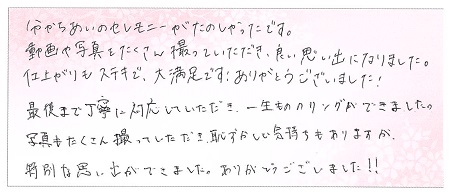 分かちあいのセレモニーがたのしかったです。
動画や写真をたくさん撮っていただき、良い思い出になりました。
仕上がりもステキで、大満足です！ありがとうございました！
最後まで丁寧に対応していただき、一生もののリングができました。
写真もたくさん撮っていただき、恥ずかしい気持ちもありますが、
特別な思い出ができました。ありがとうございました！！